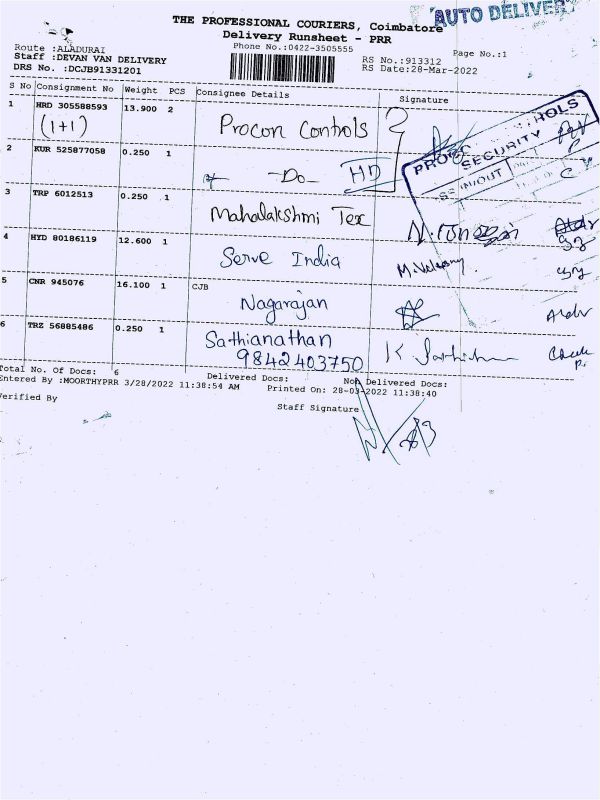 AUTO DELIVERY
THE PROFESSIONAL COURIERS, Coimbatore
Delivery Runsheet - PRR
Phone No.:0422-3505555
Page No.:1
Route :ALADURAI
Staff :DEVAN VAN DELIVERY
DRS No. :DCJB91331201
RS No.:913312
RS Date:28-Mar-2022
S No Consignment No Weight PCS Consignee Details Signature
1 HRD 305588593 13.900 2 Procon Controls
(1+1)
2 KUR 525877058 0.250 1 -Do- HD
SECURITY
IN/OUT
3 TRP 6012513 0.250 1 Mahalakshmi Tex
4 HYD 80186119 12.600 1 Serve India
5 CNR 945076 16.100 1 CJB
Nagarajan
6 TRZ 56885486 0.250 1 Sathianathan
9842403750
Total No. Of Docs: 6 Delivered Docs: Non Delivered Docs:
Entered By :MOORTHYPRR 3/28/2022 11:38:54 AM Printed On: 28-03-2022 11:38:40
Verified By
Staff Signature